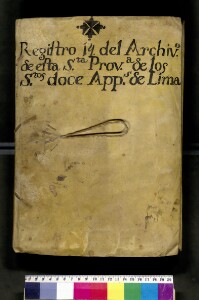 Regiſtro 14 del Archiv.º
de eſta S.ta Prov.a de los
S.tos doce App.s de Lima